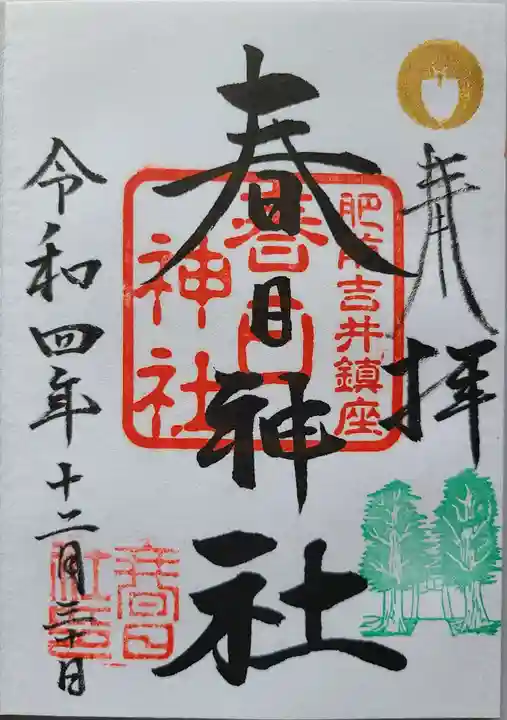 奉拝
肥前吉井鎮座
春日神社
春日
神社
令和四年十二月三十日